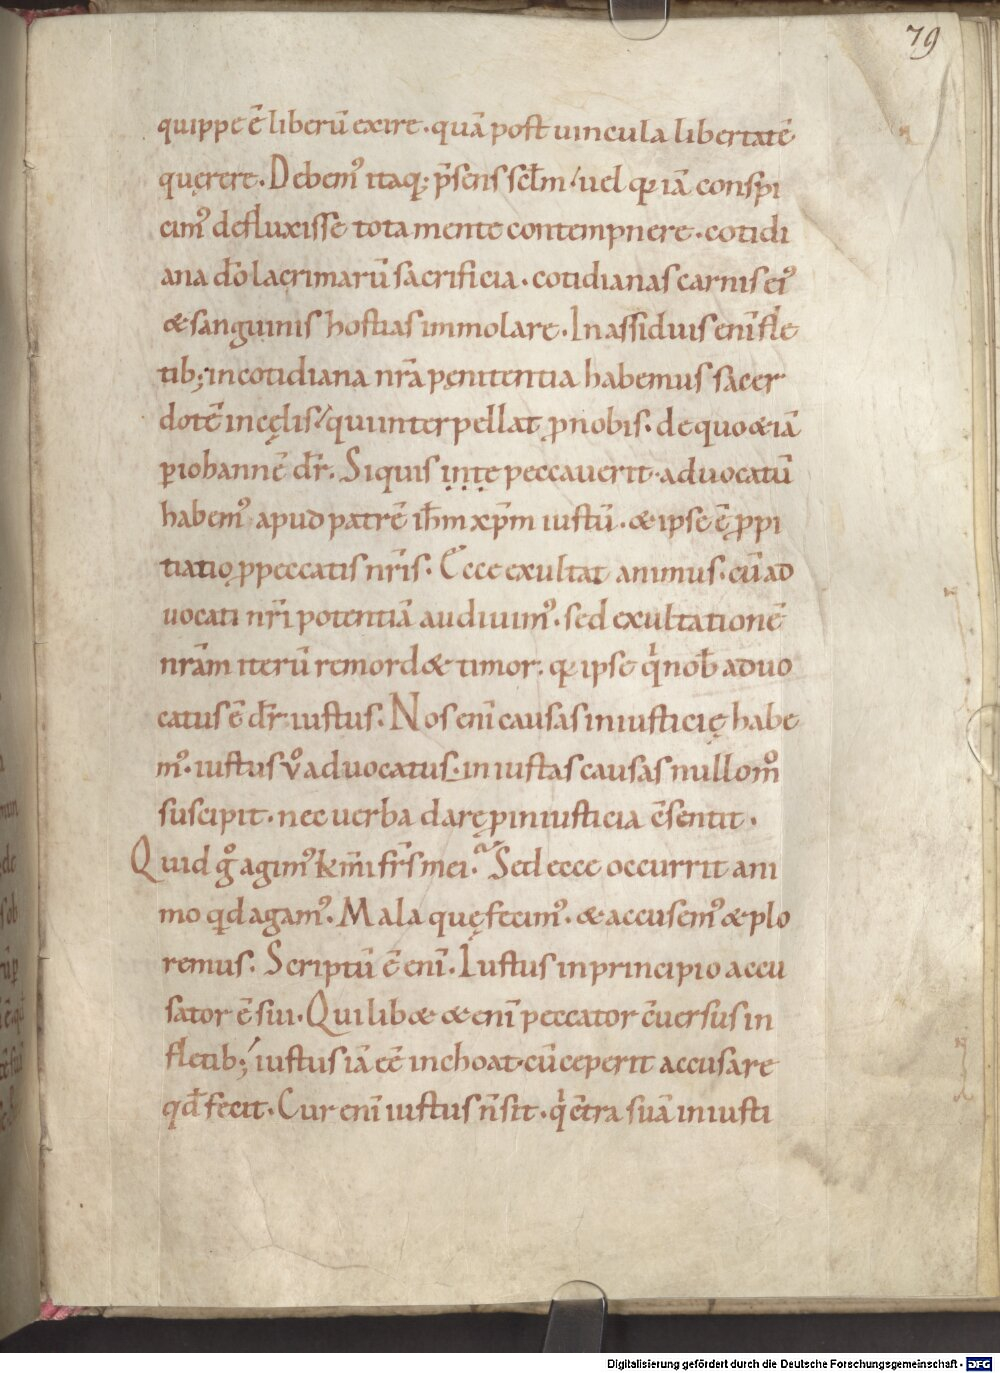 79
quippe ē liberū exire. quā post uincula libertatē
quęrere. Debem᷒ itaq; p̄sens scl̄m / uel qꝛ iā conspi
cim᷒ defluxisse tota mente contempnere. cotidi
ana dō lacrimarū sacrificia. cotidianas carnis ei᷒
& sanguinis hostias immolare. In assiduis eni̅ fle
tib; in cotidiana nr̄a pęnitentia habemus sacer
dotē in cęlis / qui interpellat ꝓ nobis. de quo & iā
ꝑ iohannē dr̄. Siquis inte peccauerit. aduocatū
habem᷒ apud patrē ih̄m xp̄m iustū. & ipse ē ꝓpi
tiatio ꝓ peccatis nr̄is. Ecce exultat animus. cū ad
uocati nr̄i potentiā audiuim᷒. sed exultationē
nrām iterū remord& timor. qꝛ ipse qͥ nob̄ aduo
catus ē dr̄ iustus. Nos eni̅ causas iniusticię habe
m᷒. iustus v̊ aduocatus. iniustas causas nullom̊
suscipit. nec uerba dare ꝓ iniusticia c̄sentit.
Quid g̊ agim᷒ km̄i fr̄s mei. Sed ecce occurrit ani
mo qd̄ agam᷒. Mala quę fecim᷒. & accusem᷒ & plo
remus. Scriptū ē eni̅. Iustus in principio accu
sator ē sui. Quilib& & eni̅ peccator c̄uersus in
fletib; iustus iā eē inchoat. cū ceperit accusare
qd̄ fecit. Cur eni̅ iustus n̄ sit. qͥ c̄tra suā iniusti
Digitalisierung gefördert durch die Deutsche Forschungsgemeinschaft - DFG